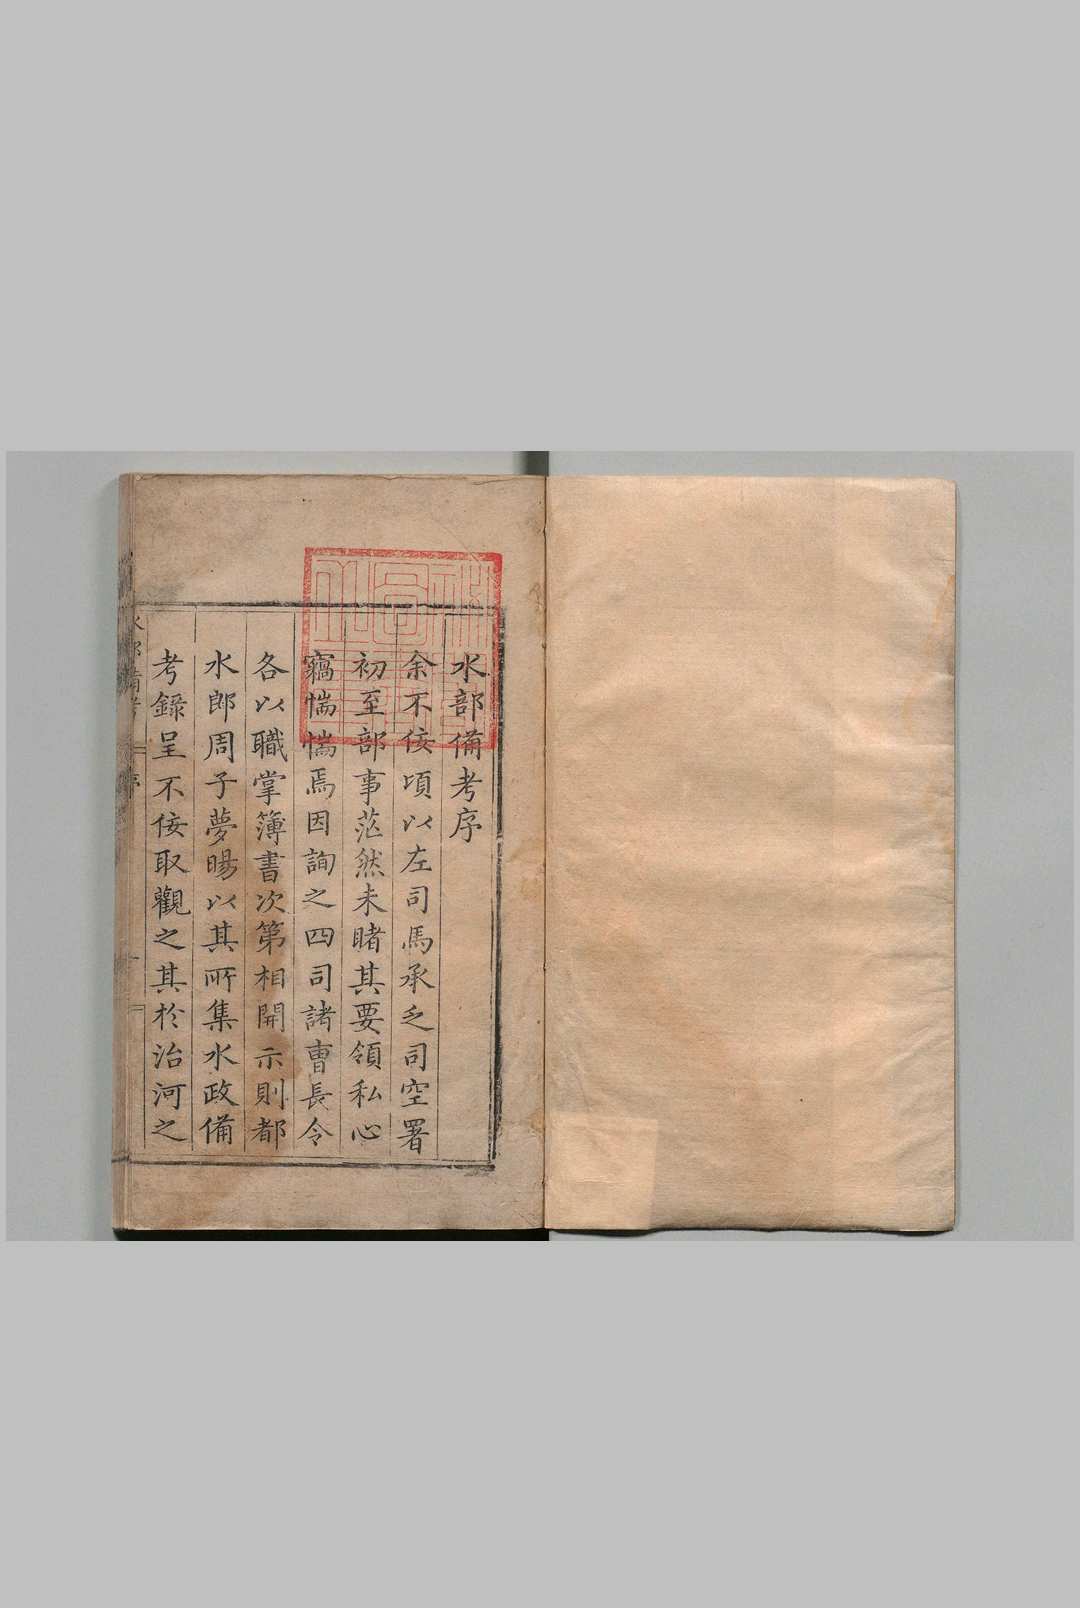 水部備考序
余不佞頃以左司馬承乏司空署
初至部事茫然未睹其要領私心
竊惴惴焉因詢之四司諸曹長令
各以職掌簿書次第相開示則都
水郎周子夢暘以其所集水政備
考錄呈不佞取觀之其於治河之
水部備考
序